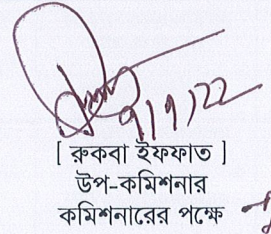 ৭/৭/22
[ রুকবা ইফফাত ]
উপ-কমিশনার
কমিশনারের পক্ষে